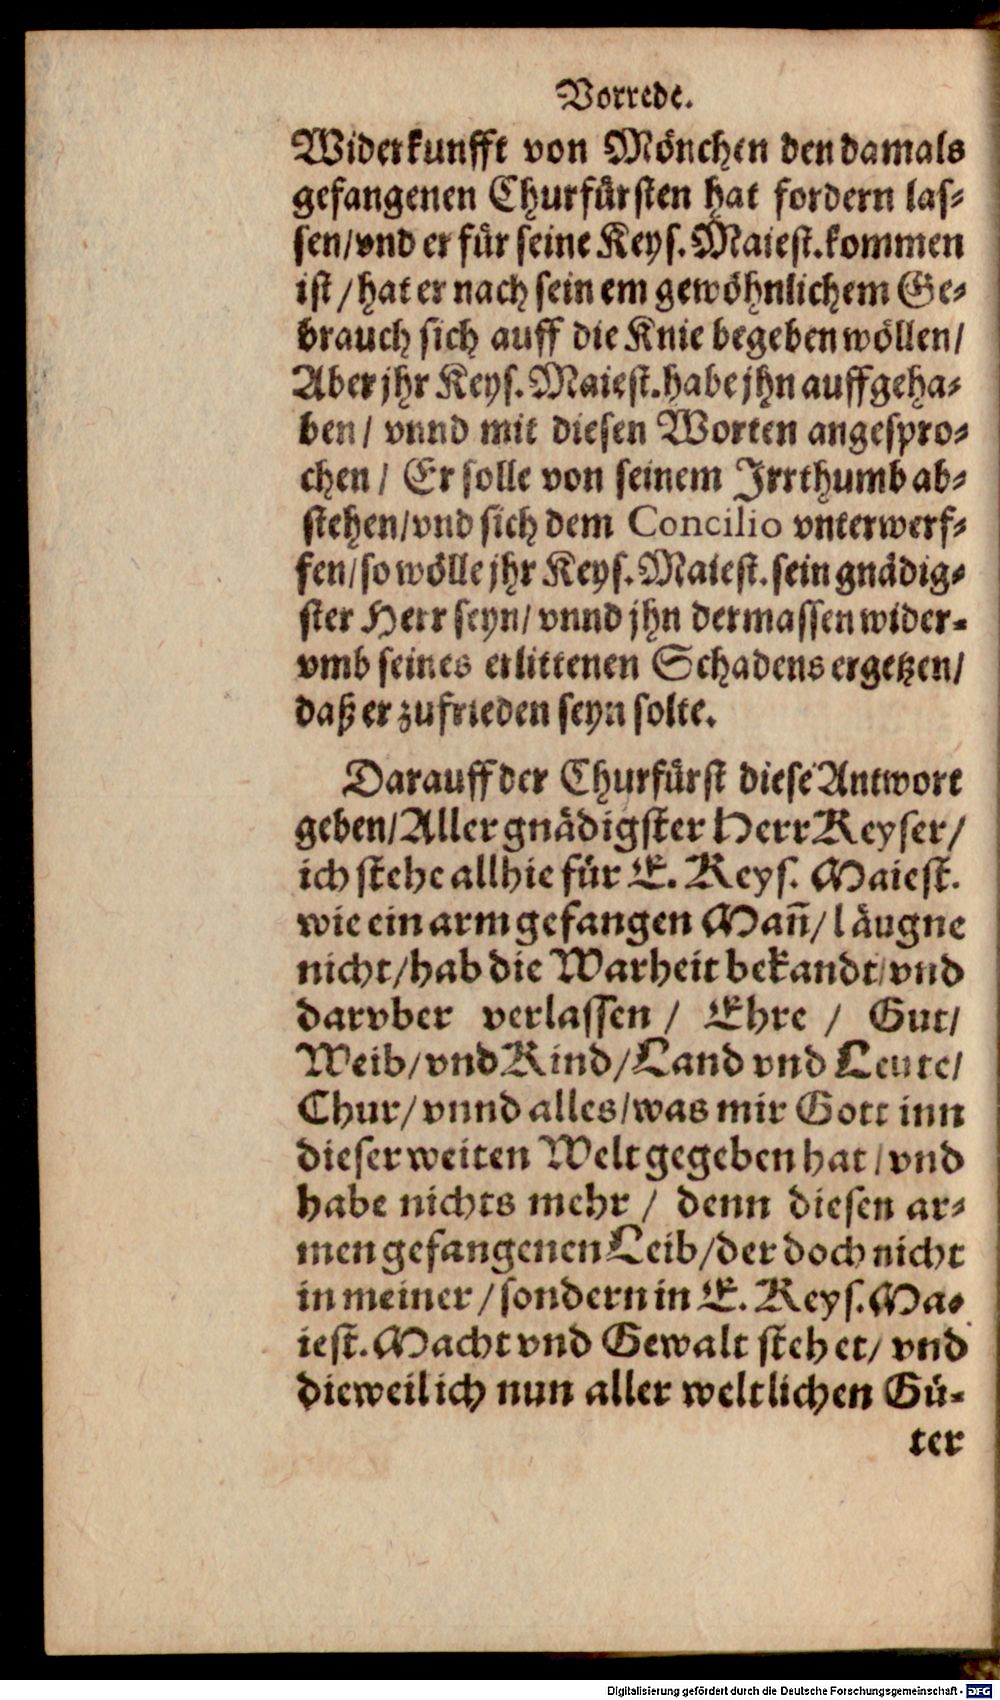 Vorrede.
Widerkunfft von Mönchen den damals
gefangenen Churfürsten hat fordern las-
sen/vnd er für seine Keys. Maiest. kommen
ist/hat er nach seinem gewöhnlichem Ge-
brauch sich auff die Knie begeben wöllen/
Aber jhr Keys. Maiest. habe jhn auffgeha-
ben/ vnnd mit diesen Worten angespro-
chen/ Er solle von seinem Irrthumb ab-
stehen/vnd sich dem Concilio vnterwerf-
fen/so wölle jhr Keys. Maiest. sein gnädig-
ster Herr seyn/ vnnd jhn dermassen wider-
vmb seines erlittenen Schadens ergetzen/
daß er zu frieden seyn solte.
Darauff der Churfürst diese Antwort
geben/Aller gnädigster Herr Keyser/
ich stehe allhie für E. Keys. Maiest.
wie ein arm gefangen Mañ/läugne
nicht/hab die Warheit bekandt/vnd
darvber verlassen/ Ehre/ Gut/
Weib/vnd Kind/Land vnd Leute/
Chur/vnnd alles/was mir Gott inn
dieser weiten Welt gegeben hat/vnd
habe nichts mehr/ denn diesen ar-
men gefangenen Leib/der doch nicht
in meiner/sondern in E. Keys. Ma-
iest. Macht vnd Gewalt stehet/ vnd
dieweil ich nun aller weltlichen Gü-
ter
Digitalisierung gefördert durch die Deutsche Forschungsgemeinschaft - DFG